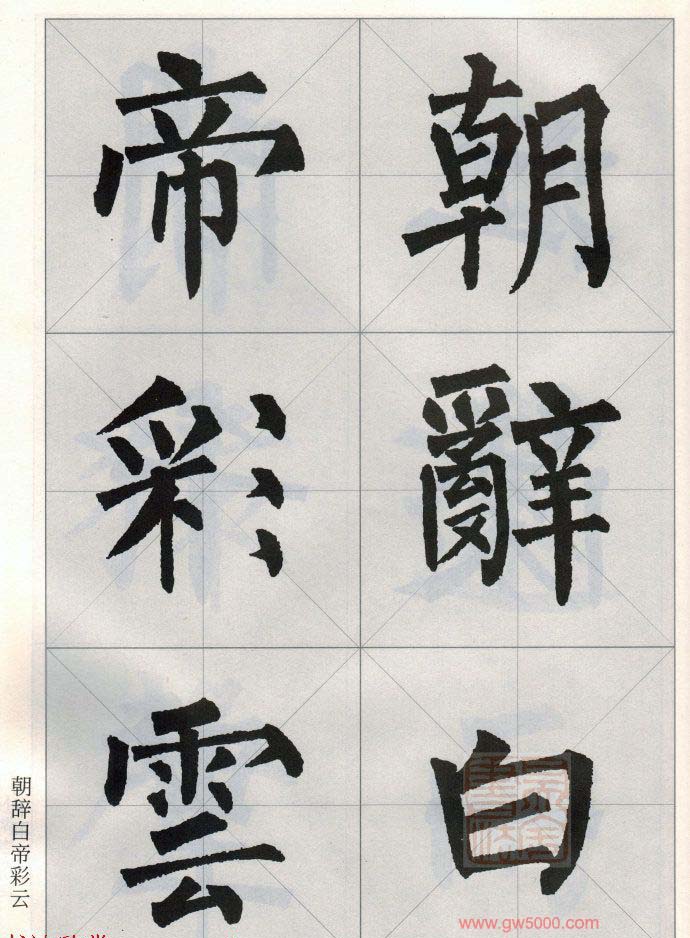 朝辭白
帝彩雲
朝辞白帝彩云
www.gw5000.com